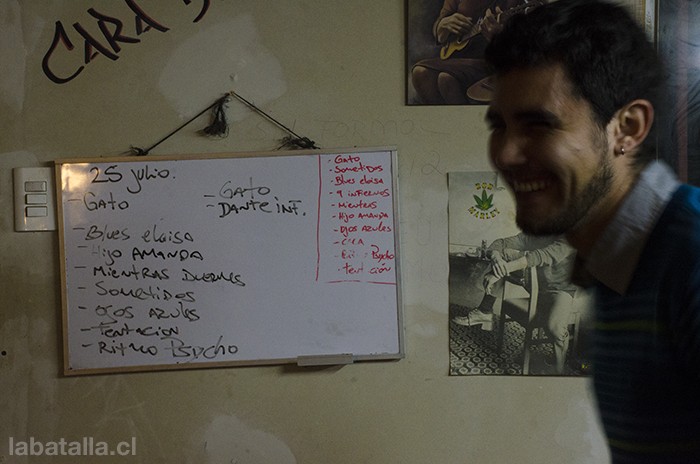 CARA
25 julio.
- GATO
- Blues eloisa
- Hijo AMANDA
- MIENTRAS DUERMES
- SOMETIDOS
- OJOS AZULES
- TENTACION
- RITMO PSYCHO
- GATO
- DANTE INF.
- GATO
- Sometidos
- Blues eloisa
- 9 INFIERNOS
- Mientras
- Hijo AMANDA
- OJOS AZULES
- Psycho
- Tentación
labatalla.cl